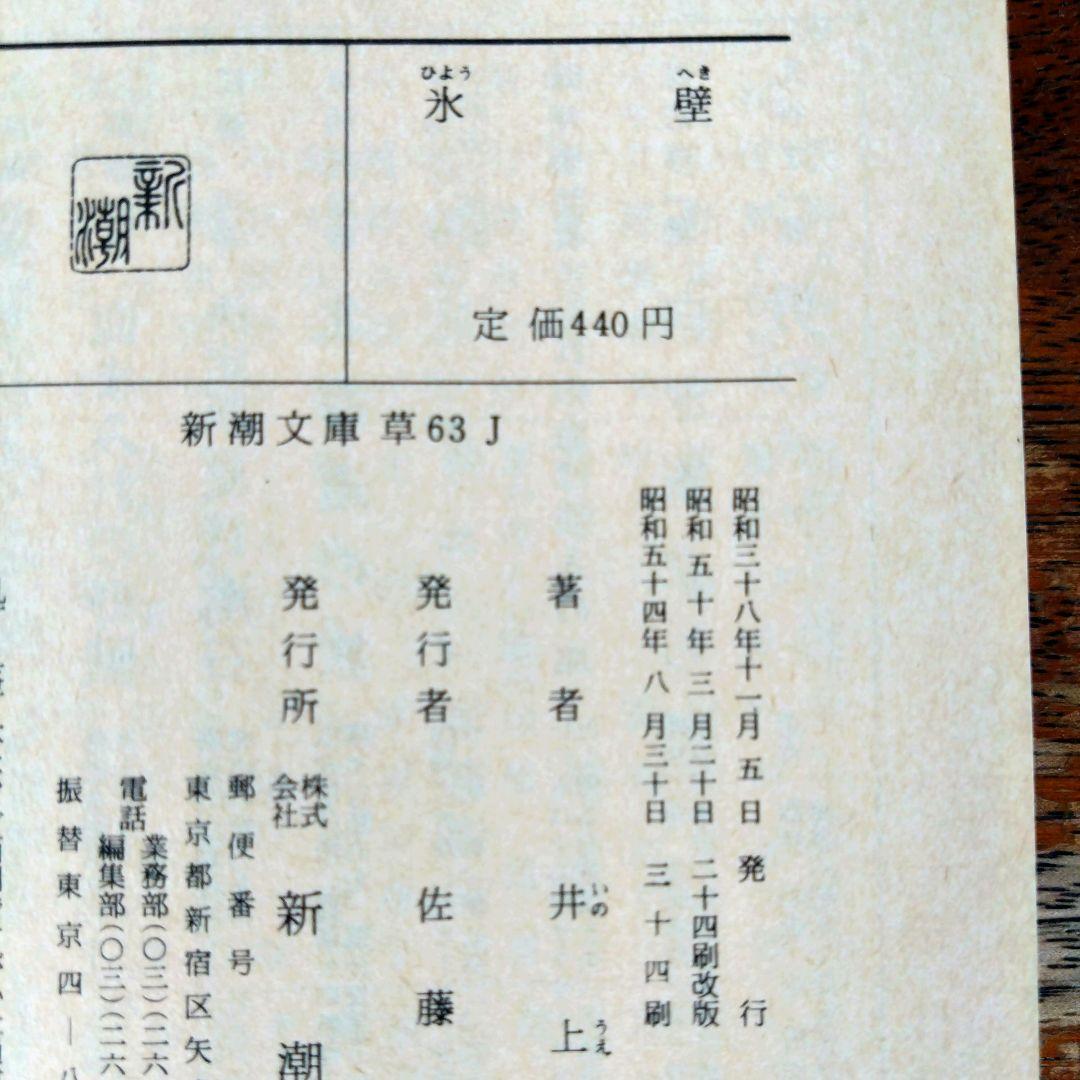 氷壁
ひょう へき
新潮
定価440円
新潮文庫 草63J
昭和三十八年十一月五日 発行
昭和五十年三月二十日 二十四刷改版
昭和五十四年八月三十日 三十四刷
著者 井上
いの うえ
発行者 佐藤
発行所 株式会社 新潮
郵便番号
東京都新宿区矢
電話 業務部(〇三)二六
編集部(〇三)二六
振替東京四—八